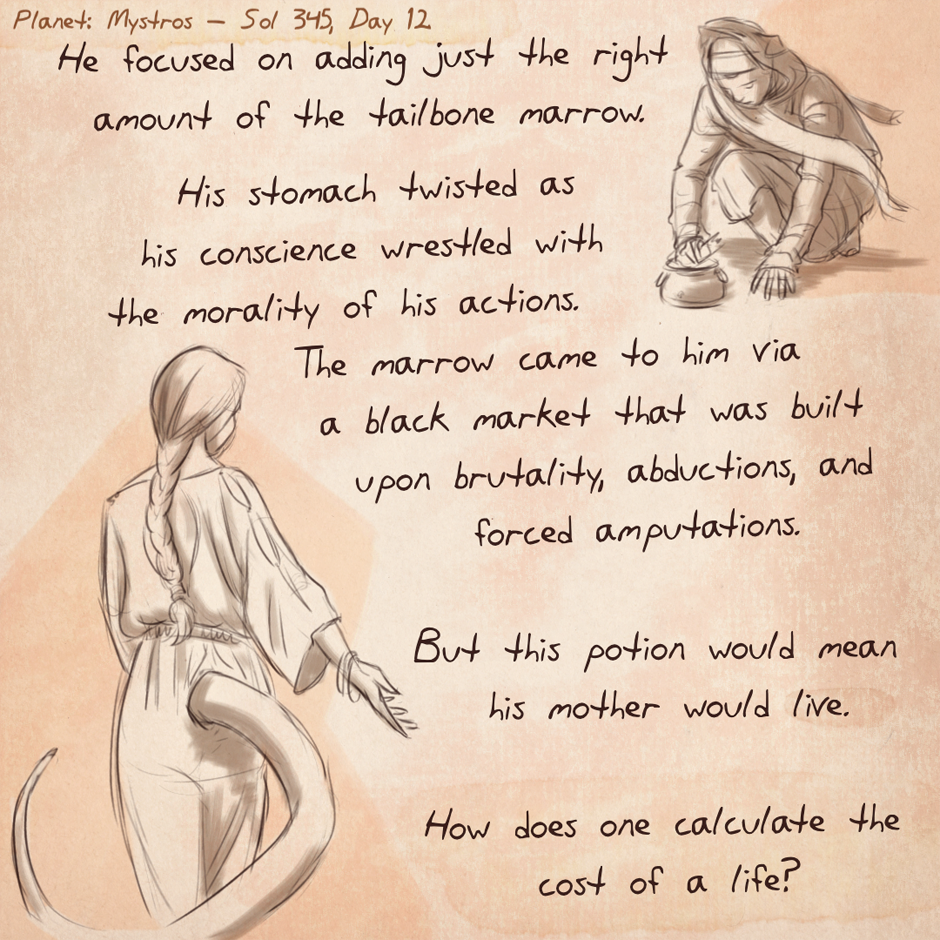 Planet: Mystros – Sol 345, Day 12
He focused on adding just the right
amount of the tailbone marrow.
His stomach twisted as
his conscience wrestled with
the morality of his actions.
The marrow came to him via
a black market that was built
upon brutality, abductions, and
forced amputations.
But this potion would mean
his mother would live.
How does one calculate the
cost of a life?